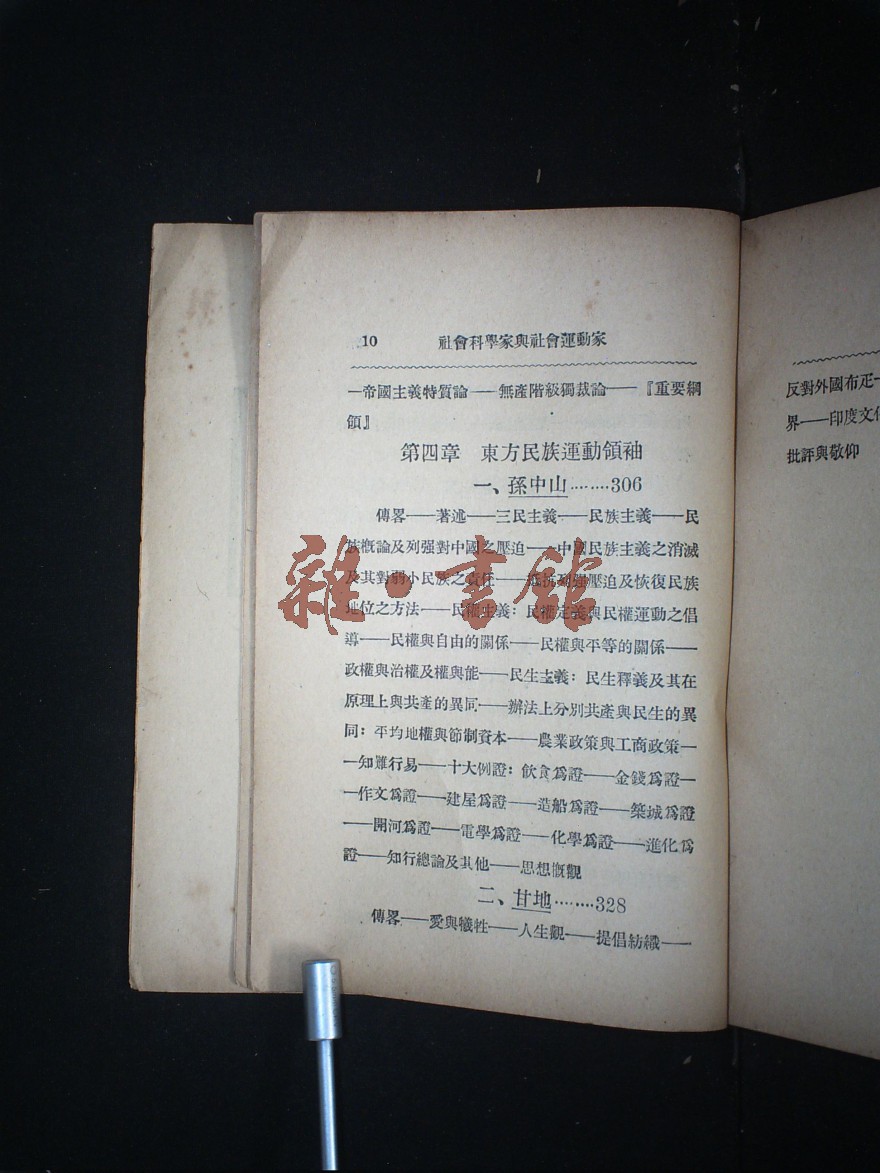 10 社會科學家與社會運動家
—帝國主義特質論——無產階級獨裁論——『重要綱
領』
第四章 東方民族運動領袖
一、孫中山········306
傳畧——著述——三民主義——民族主義——民
族概論及列强對中國之壓迫——中國民族主義之消滅
及其對弱小民族之責任——抵抗列强壓迫及恢復民族
地位之方法——民權主義：民權定義與民權運動之倡
導——民權與自由的關係——民權與平等的關係——
政權與治權及權與能——民生主義：民生釋義及其在
原理上與共產的異同——辦法上分別共產與民生的異
同：平均地權與節制資本——農業政策與工商政策—
—知難行易——十大例證：飲食爲證——金錢爲證—
—作文爲證——建屋爲證——造船爲證——築城爲證
——開河爲證——電學爲證——化學爲證——進化爲
證——知行總論及其他——思想概觀
二、甘地········328
傳畧——愛與犧牲——人生觀——提倡紡織——
反對外國布疋—
界——印度文化
批評與敬仰
雜·書館